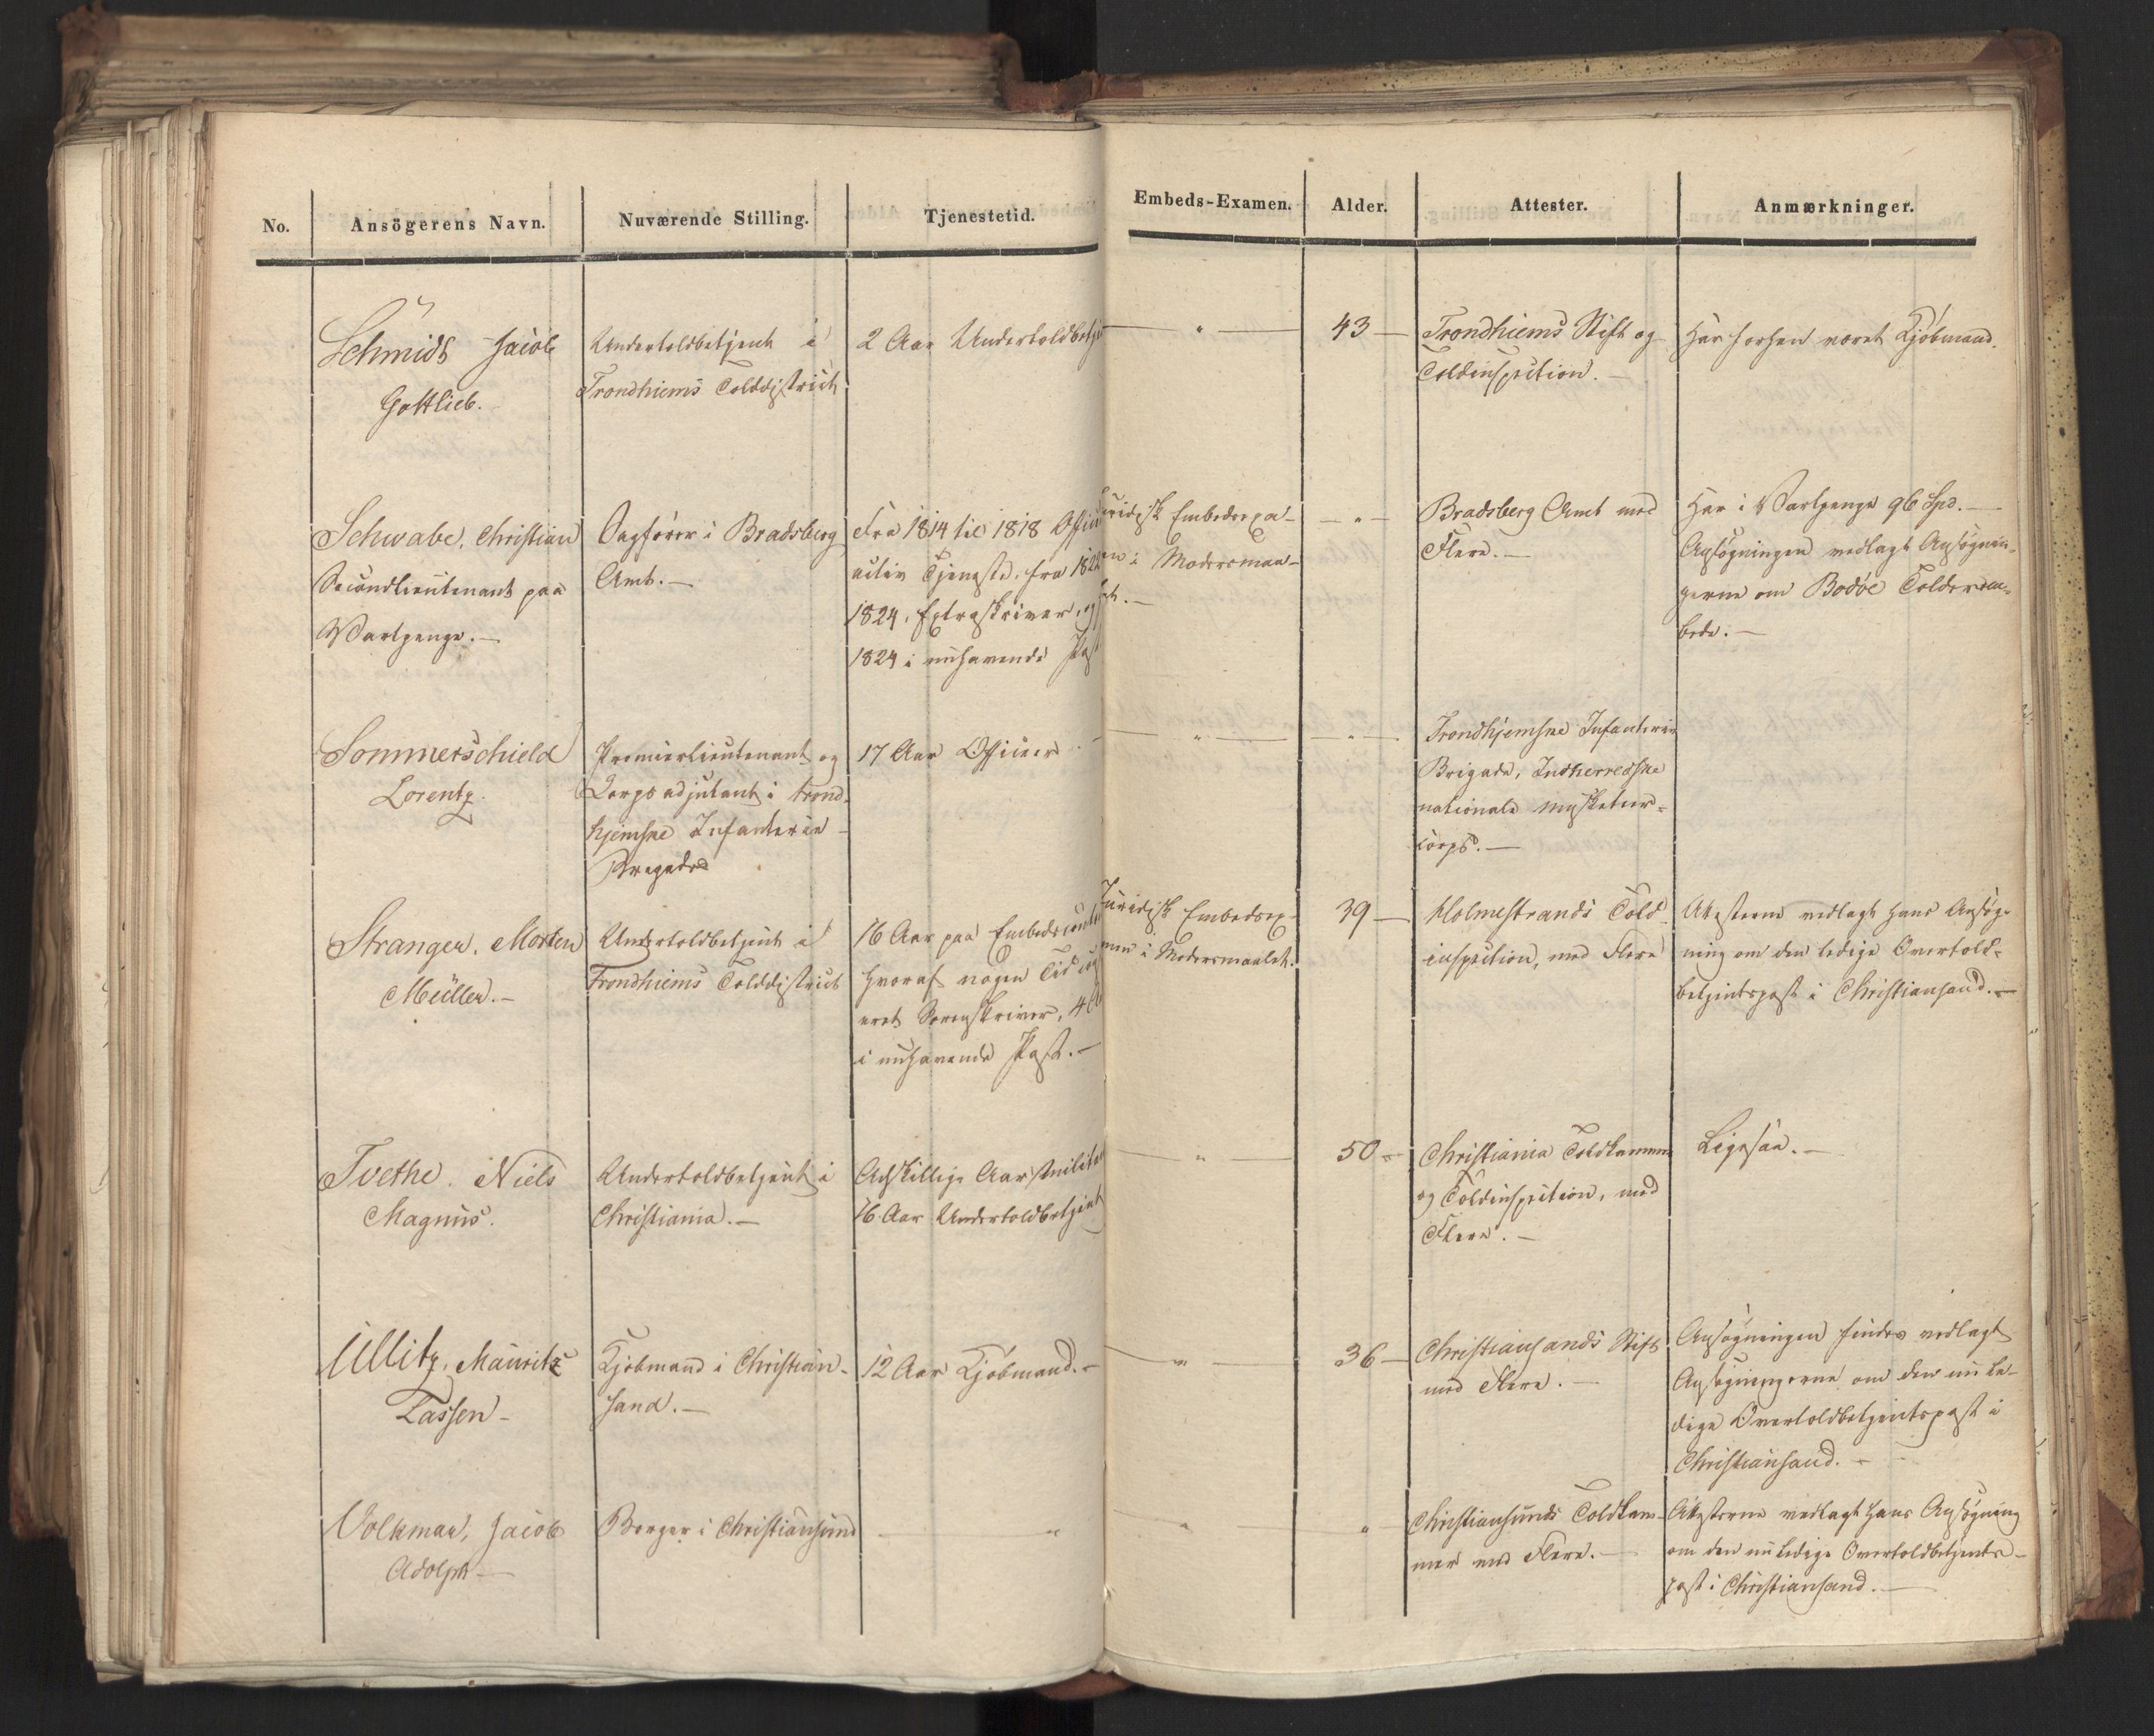 No. Ansögerens Navn. Nuværende Stilling. Tjenestetid. Embeds-Examen. Alder. Attester. Anmærkninger.
Schmidt Jacob
Gottlieb.
Undertoldbetjent i
Trondhiems Tolddistrict
2 Aar Undertoldbetje
"
43
Trondhiems Stift og
Toldinspection.
Har forhen været Kjöbmand.
Schwabe, Christian
Secondlieutenant paa
Vartpenge.
Sagförer i Bradsberg
Amt.
Fra 1814 til 1818 Officer
activ Tjeneste, fra 1822
1824, Extraskriver, og
1824 i nuhavende Post
Juridisk Embedsexa-
en i Modersmaa-
let.
"
Bradsberg Amt med
Flere.
Har i Vartpenge 96 Spd.
Ansögningen vedlagt Ansögnin-
gerne om Bodöe Tolderem-
bede.
Sommerschield
Lorentz.
Premierlieutenant og
Corpsadjutant i trond-
hjemske Infanterie
Brigade
17 Aar Officeer
"
"
Trondhjemske Infanterie
Brigade, Indherredske
nationale musketeer-
corps.
Stranger, Morten
Müller.
Undertoldbetjent i
Trondhiems Tolddistrict
16 Aar paa Embedscontoi
hvoraf nogen Tid
eret Sorenskriver, 4 A
i nuhavende Post.
Juridisk Embedsex-
men i Modersmaalet.
39
Holmestrands Told
inspection, med Flere
Attesterne vedlagt hans Ansög-
ning om den ledige Overtold-
betjentspost i Christiansand.
Tvethe. Niels
Magnus.
Undertoldbetjent i
Christiania.
Adskillige Aar i milita
16 Aar Undertoldbetjent
"
50
Christiania Toldkammer
og Toldinspection, med
Flere.
Ligesaa.
Ullitz, Mauritz
Lassen
Kjöbmand i Christian-
sand.
12 Aar Kjöbmand.
"
36
Christiansands Stift
med Flere.
Ansögningen findes vedlagt
Ansögningerne om den nu le-
dige Overtoldbetjentspost i
Christiansand.
Volkmar, Jacob
Adolph
Borger i Christiansund
"
"
"
Christiansunds Toldkam-
mer med Flere.
Attesterne vedlagt hans Ansögning
om den nu ledige Overtoldbetjents-
post i Christiansand.